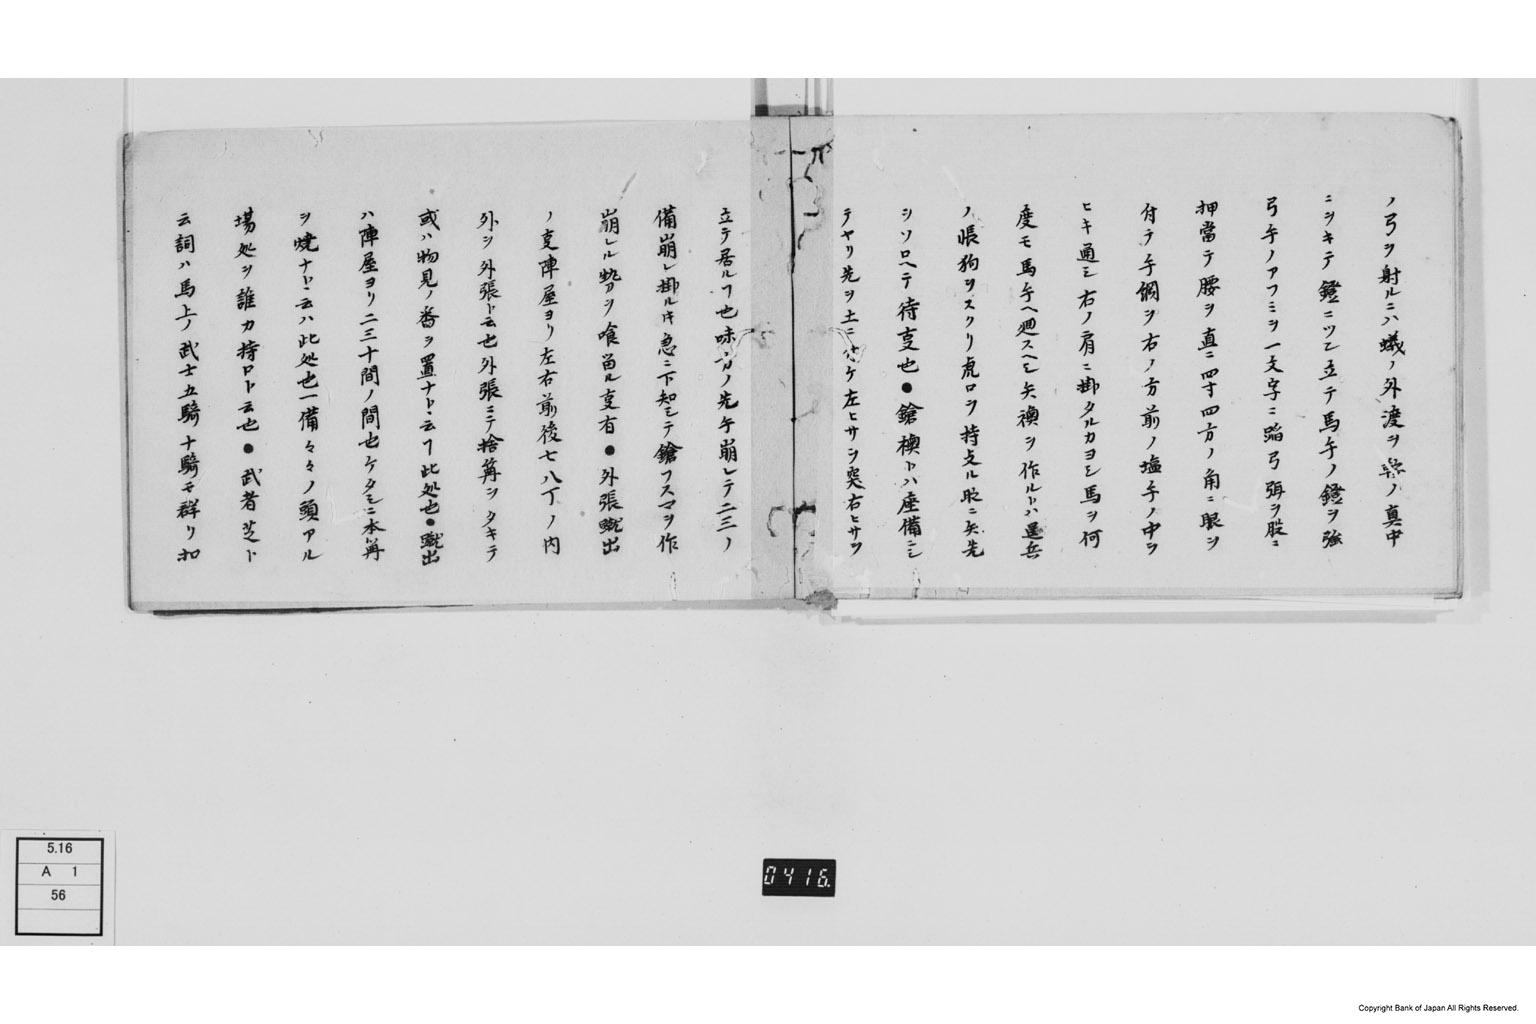 ノ弓ヲ射ルニハ蟻ノ外渡ヲ ノ真中
ニシキテ鐙ニツ乙立テ馬手ノ鐙ヲ強
弓手ノアフミヲ一文字ニ踏弓弭ヲ股ニ
押當テ腰ヲ直ニ四寸四方ノ角ニ眼ヲ
付テ手綱ヲ右ノ方前ノ塩手ノ中ヲ
ヒキ通シ右ノ肩ニ掛タルカヨシ馬ヲ何
度モ馬手ヘ廻スヘシ矢襖ヲ作ルトハ 兵
ノ帳狗ヲスクリ虎口ヲ持支ル 二矢先
シソロヘテ待支也●鎗襖トハ座備ニシ
テヤリ先ヲ土ニ ケ左ヒサヲ突右ヒサヲ
立テ居ルヿ也味方ノ先手崩レテ二三ノ
備崩レ掛ル 急ニ下知シテ鎗フスマヲ作
崩レル勢ヲ喰留ル支有●外張蹴出
ノ支陣屋ヨリ左右前後七八丁ノ内
外ヲ外張ト云也外張ニテ捨篝ヲタキテ
或ハ物見ノ番ヲ置ナト云フ此処也●蹴出
ハ陣屋ヨリ二三十間ノ間也ケタシニ本篝
ヲ焼ナト云ハ此処也一備々々ノ頭アル
場処ヲ誰カ持口ト云也●武者芝ト
云詞ハ馬上ノ武士五騎十騎モ群リ扣
5.16
A 1
56
0416.
Copyright Bank of Japan All Rights Reserved.